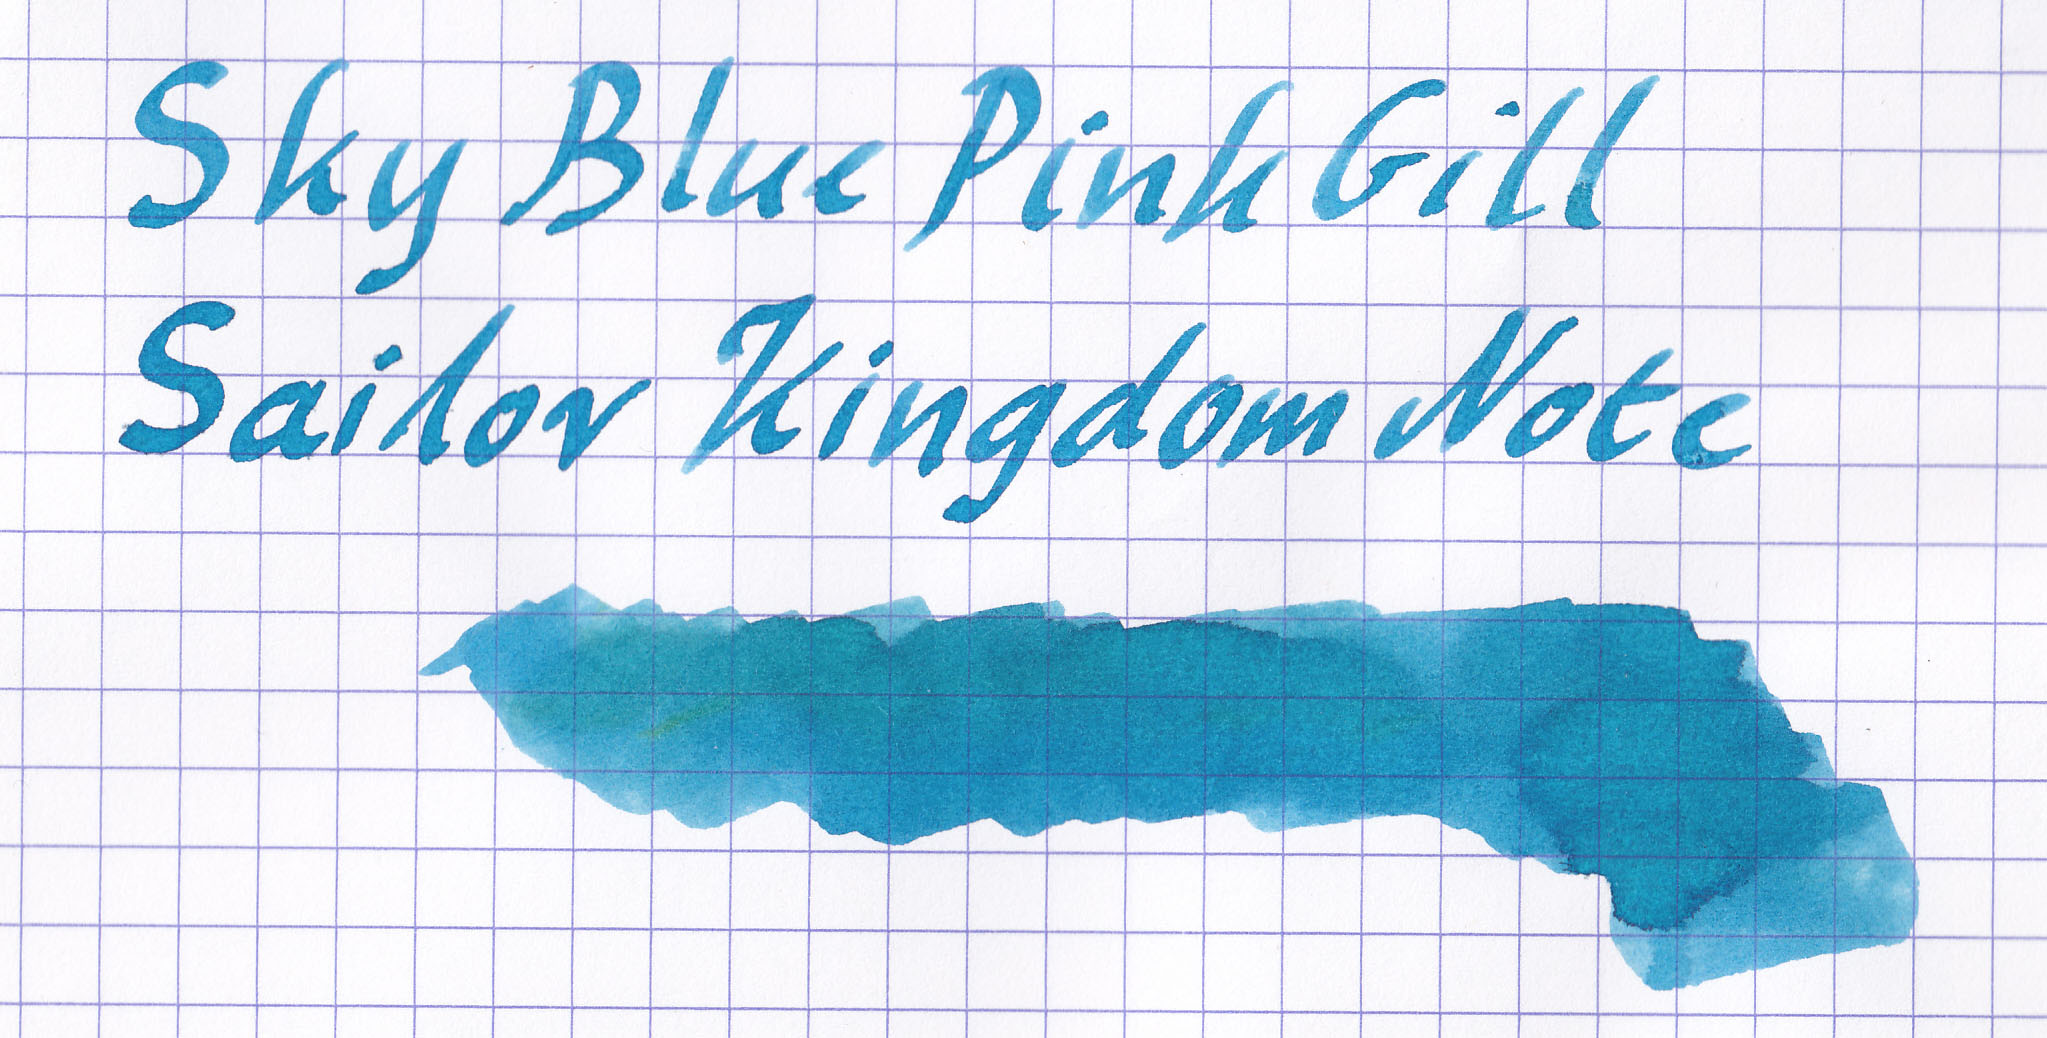 Sky Blue Pink Gill
Sailor Kingdom Note